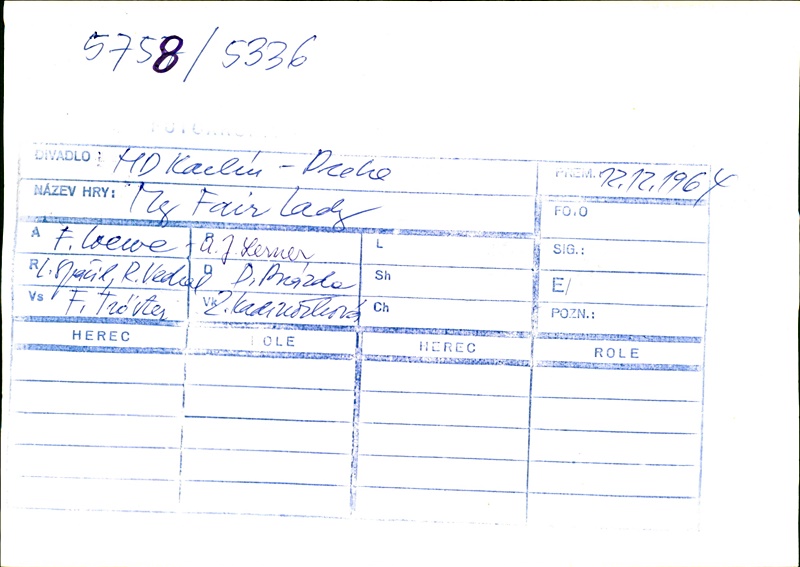 5758/5336
DIVADLO: HD Karlín - Praha PREM. 12.12.1964
NÁZEV HRY: My Fair Lady FOTO
A F. Loewe - P A. J. Lerner L SIG.:
R L. Spáčil, R. Vedral D P. Brázda Sh E/
Vs F. Tröster Vk Z. Kadrnožková Ch POZN.:
HEREC ROLE HEREC ROLE